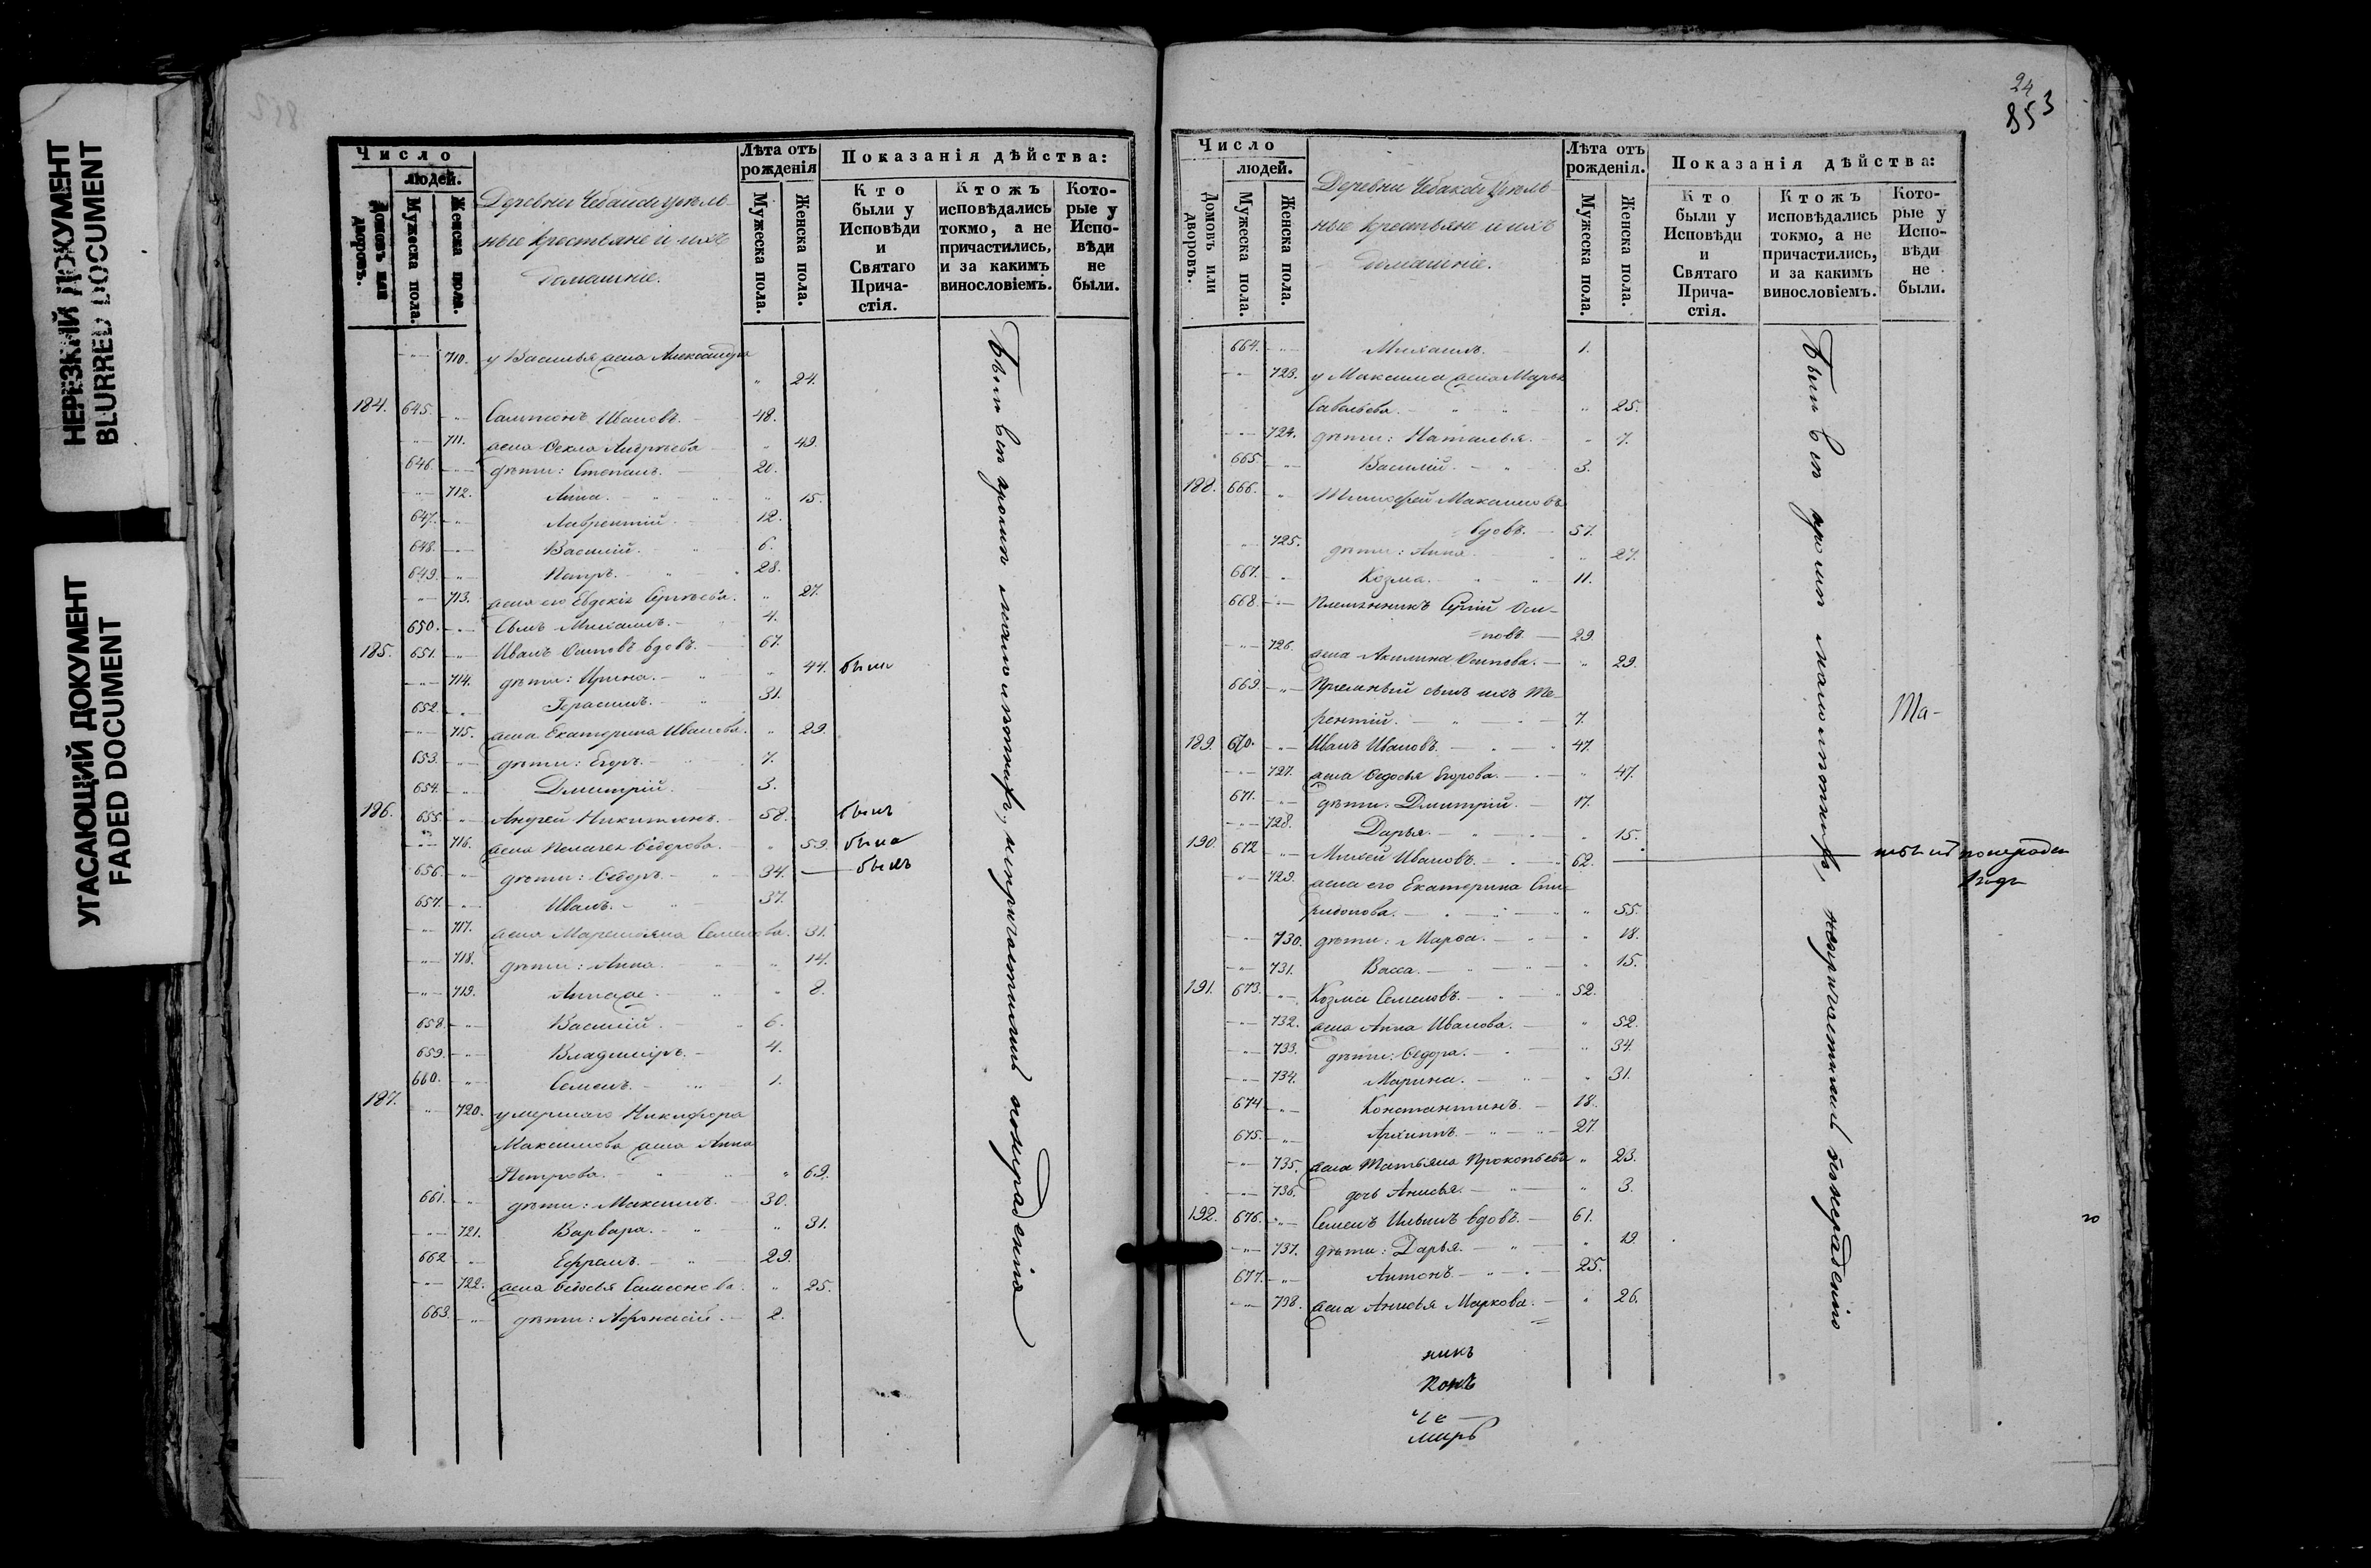 НЕРЕЗКИЙ ДОКУМЕНТ
BLURRED DOCUMENT
УГАСАЮЩИЙ ДОКУМЕНТ
FADED DOCUMENT
Число
людей.
Домовъ или дворовъ.
Мужеска пола.
Женска пола.
Деревни
ные крестьяне и ихъ
домашніе.
Лѣта отъ рожденія
Мужеска пола.
Женска пола.
Показанія дѣйства:
Кто были у Исповѣди и Святаго Прича-стія.
Ктожъ исповѣдались токмо, а не причастились, и за какимъ винословіемъ.
Кото-рые у Испо-вѣди не были.
710. у Василья жена Александра
24.
184. 645. Сампсонъ Ивановъ. 48.
711. жена Ѳекла Андреева 49.
646. дѣти: Степанъ. 20.
712. Анна. 15.
647. Лаврентій. 12.
648. Василій. 6.
649. Петръ. 28.
713. жена его Евдокія Сергѣева. 27.
650. Сынъ Михаилъ. 4.
185. 651. Иванъ Осиповъ вдовъ. 67.
714. дѣти: Ирина. 44. были
652. Герасимъ. 31.
715. жена Екатерина Иванова. 29.
653. дѣти: Егоръ. 7.
654. Дмитрій. 3.
186. 655. Андрей Никитинъ. 58. былъ
716. жена Пелагея Ѳедорова. 59. была
656. дѣти: Ѳедоръ. 34. былъ
657. Иванъ. 37.
717. жена Маремьяна Семенова. 31.
718. дѣти: Анна. 14.
719. 8.
658. Василій. 6.
659. Владиміръ. 4.
660. Семенъ. 1.
187. 720. умершаго Никифора
Максимова жена Анна
Петрова. 69.
661. дѣти: Максимъ. 30.
721. Варвара. 31.
662 Ефремъ. 29.
722. жена Ѳедосья Самсонова. 25.
663. дѣти: Афонасій. 2.
24
853
Число
людей.
Домовъ или дворовъ.
Мужеска пола.
Женска пола.
Деревни
ные крестьяне и ихъ
домашніе.
Лѣта отъ рожденія.
Мужеска пола.
Женска пола.
Показанія дѣйства:
Кто были у Исповѣди и Святаго Прича-стія.
Ктожъ исповѣдались токмо, а не причастились, и за какимъ винословіемъ.
Кото-рые у Испо-вѣди не были.
664. Михаилъ. 1.
723. у Максима жена Марья
Савельева. 25.
724. дѣти: Наталья. 7.
665. Василій. 3.
188. 666. Тимофей Максимовъ
вдовъ. 51.
725. дѣти: Анна. 27.
667. Козма. 11.
668. Племянникъ Сергій Оси-
=повъ. 29
726. жена Акилина Осипова. 29.
669. Пріемный сынъ ихъ Те-
рентій. 7.
Та-
189. 670. Иванъ Ивановъ. 47.
727. жена Ѳедосья Егорова. 47.
671. дѣти: Дмитрій. 17.
728. Дарья. 15.
190. 672 Михей Ивановъ. 62.
729. жена его Екатерина Спи-
ридонова. 55.
730. дѣти: Марѳа. 18.
731. Васса. 15.
191. 673. Козма Семеновъ. 52.
732. жена Анна Иванова. 52.
733. дѣти: Ѳедора. 34.
734. Марина. 31.
674 Константинъ. 18.
675. Архиппъ. 27.
735. жена Татьяна Прокопьева 23.
736. дочь Анисья. 3.
192. 676. Семенъ Ильинъ вдовъ. 61.
737. дѣти: Дарья. 19.
677. Антонъ. 25.
738. жена Анисья Маркова. 26.